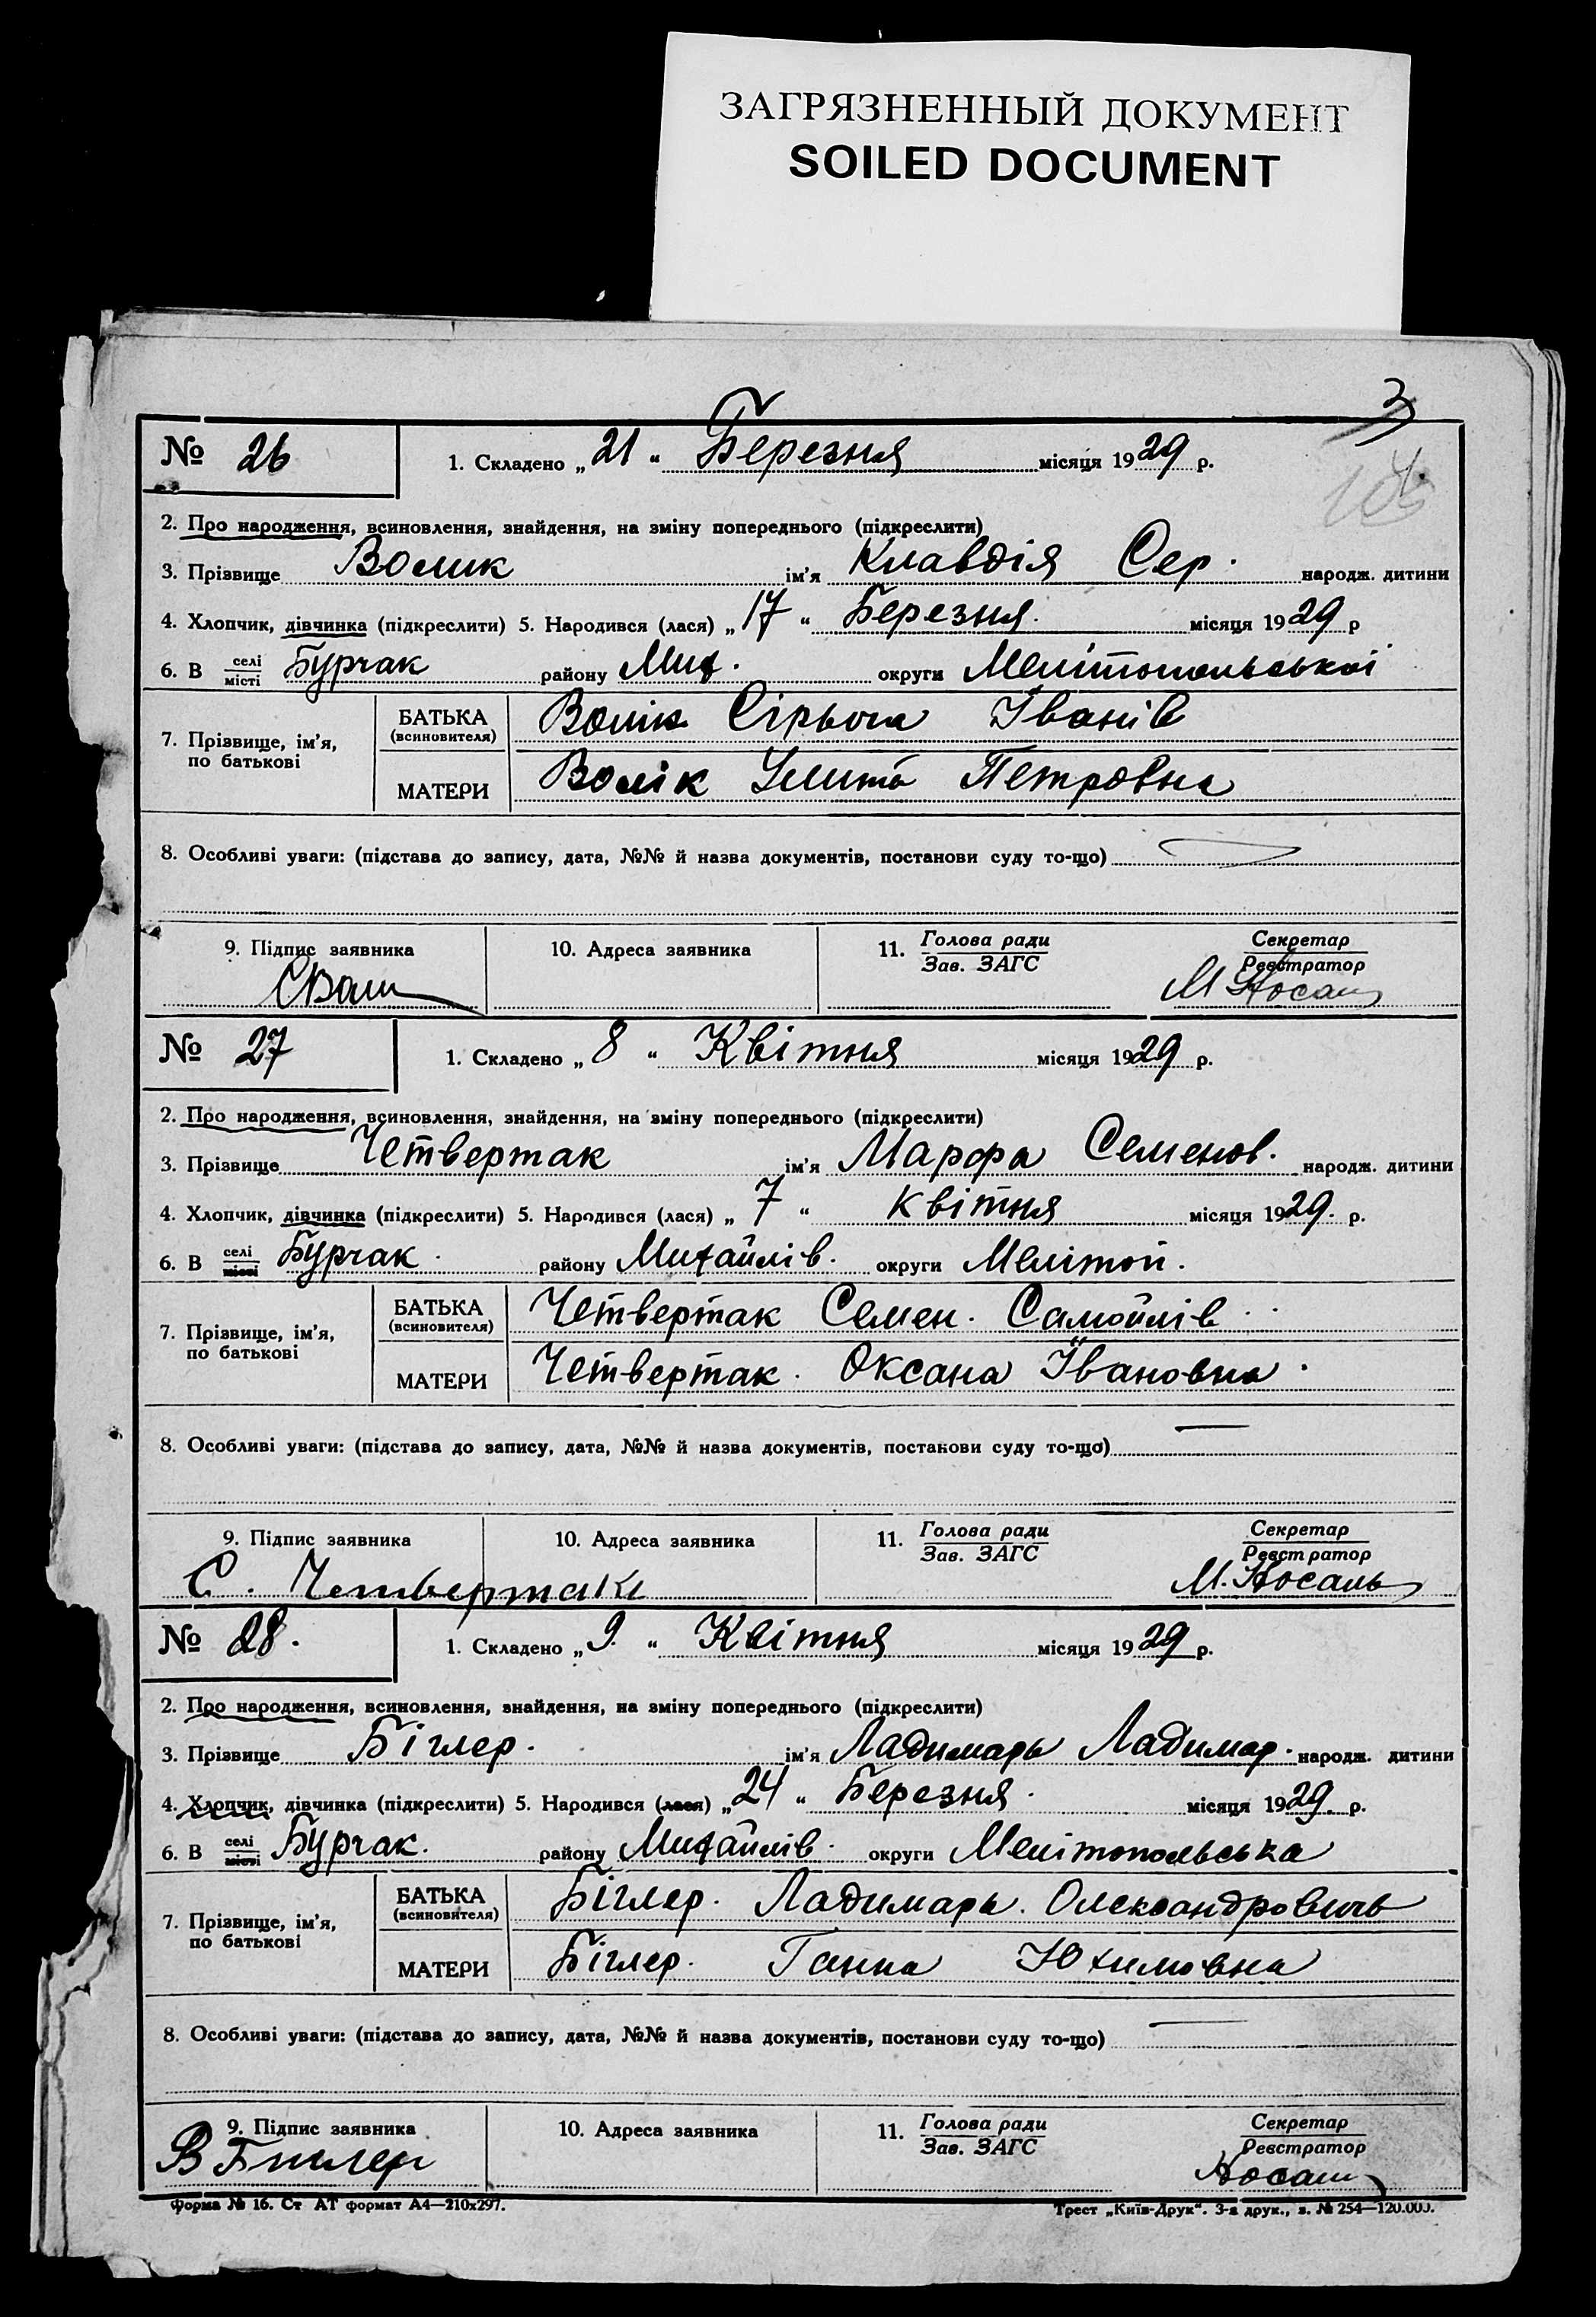 ЗАГРЯЗНЕННЫЙ ДОКУМЕНТ
SOILED DOCUMENT
3
№ 26
1. Складено „21“ Березня місяця 1929 р.
2. Про народження, всиновлення, знайдення, на зміну попереднього (підкреслити)
3. Прізвище Волик ім'я Клавдія Сер. народж. дитини
4. Хлопчик, дівчинка (підкреслити) 5. Народився (лася) „17“ Березня. місяця 1929 р
6. В селі місті Бурчак району Мих. округи Мелітопольської
7. Прізвище, ім'я, по батькові
БАТЬКА (всиновителя) Волік Сірьога Іванів
МАТЕРИ Волік Улита Петровна
8. Особливі уваги: (підстава до запису, дата, №№ й назва документів, постанови суду то-що)
9. Підпис заявника 10. Адреса заявника 11. Голова ради Зав. ЗАГС Секретар Реєстратор
М Носаль
№ 27
1. Складено „8“ Квітня місяця 1929 р.
2. Про народження, всиновлення, знайдення, на зміну попереднього (підкреслити)
3. Прізвище Четвертак ім'я Марфа Семенов. народж. дитини
4. Хлопчик, дівчинка (підкреслити) 5. Народився (лася) „7“ квітня місяця 1929. р.
6. В селі місті Бурчак. району Михайлів. округи Мелітоп.
7. Прізвище, ім'я, по батькові
БАТЬКА (всиновителя) Четвертак Семен. Самойлів
МАТЕРИ Четвертак. Оксана Івановна.
8. Особливі уваги: (підстава до запису, дата, №№ й назва документів, постанови суду то-що)
9. Підпис заявника 10. Адреса заявника 11. Голова ради Зав. ЗАГС Секретар Реєстратор
С. Четвертак М. Носаль
№ 28.
1. Складено „9.“ Квітня місяця 1929 р.
2. Про народження, всиновлення, знайдення, на зміну попереднього (підкреслити)
3. Прізвище Біглер. ім'я Ладимарь Ладимар. народж. дитини
4. Хлопчик, дівчинка (підкреслити) 5. Народився (лася) „24“ Березня. місяця 1929. р.
6. В селі місті Бурчак. району Михайлів. округи Мелітопольська
7. Прізвище, ім'я, по батькові
БАТЬКА (всиновителя) Біглер. Ладимарь. Олександровичь
МАТЕРИ Біглер. Ганна Юхимовна
8. Особливі уваги: (підстава до запису, дата, №№ й назва документів, постанови суду то-що)
9. Підпис заявника 10. Адреса заявника 11. Голова ради Зав. ЗАГС Секретар Реєстратор
В Носаль
Форма № 16. Ст АТ формат А4—210х297.
Трест „Київ-Друк“. 3-я друк., з. № 254—120.000.